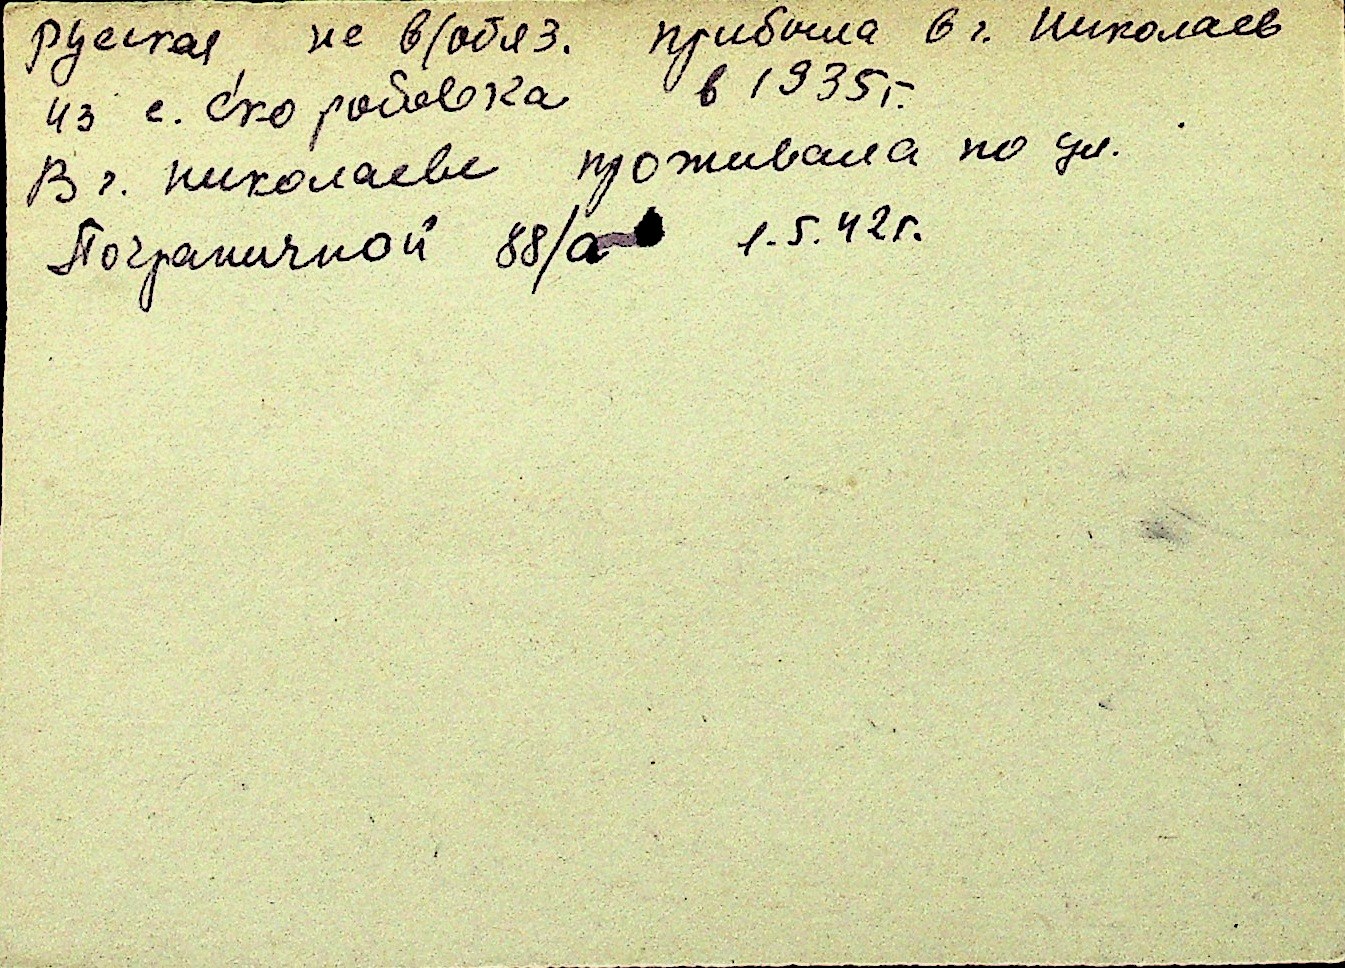 руская не в/обяз. прибыла в г. Николаев
из с. Скоробовка в 1935г.
В г. Николаеве проживала по ул.
Пограничной 88/а 1.5.42г.